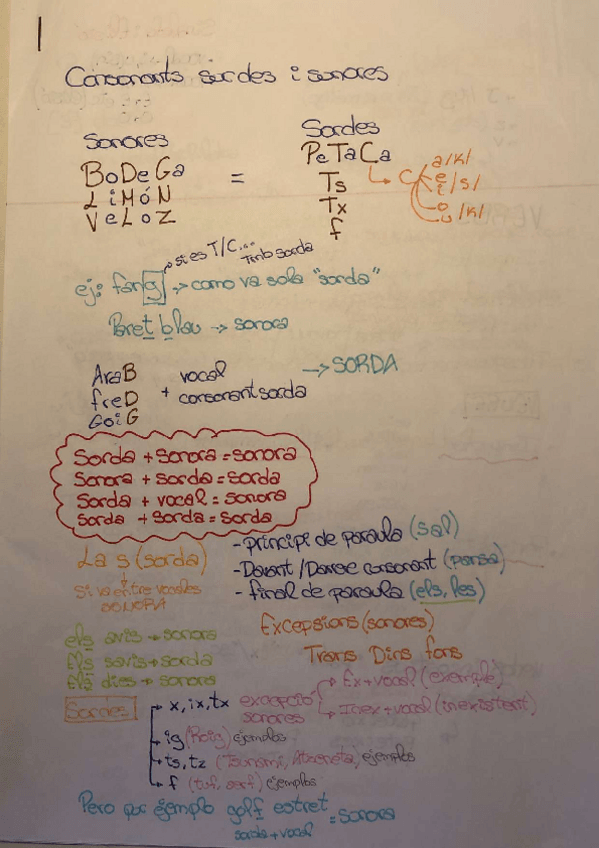 Consonants sordes i sonores
Sonores
Sordes
BoDeGa = PeTaCa
LiMóN
VeLoZ
Ts
Tx
f
C
a/k/
e
i /s/
o
u /k/
si es T/C... Tmb sorda
ej: fang -> como va sola "sorda"
Paret blau -> sonora
AraB
freD
GoiG
+ vocal
consonant sorda
-> SORDA
Sorda + Sonora = sonora
Sonora + sorda = sorda
Sorda + vocal = sonora
Sorda + Sorda = Sorda
La s (sorda)
Si va entre vocales
SONORA
- principi de paraula (sal)
- Davant/Darree consonant (pansa)
- final de paraula (els, les)
Excepsions (sonores)
Trans Dins fons
els avis -> sonora
Els savis -> sorda
Els dies -> sonora
Sordes
x, ix, tx excepció sonores
Ex + vocal (exemple)
Inex + vocal (inexistent)
ig (Roig) ejemplos
ts, tz (Tsunami, ejemplos
f (tuf, serf) ejemplos
Pero por ejemplo golf estret = sonora
sorda + vocal